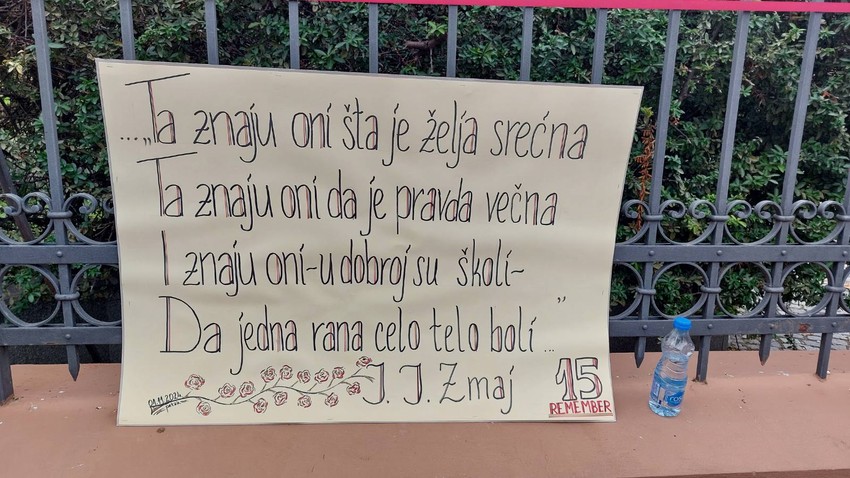 ..."Ta znaju oni šta je želja srećna
Ta znaju oni da je pravda večna
I znaju oni-u dobroj su školi-
Da jedna rana celo telo boli..."
J. J. Zmaj
01.11.2024
15
REMEMBER